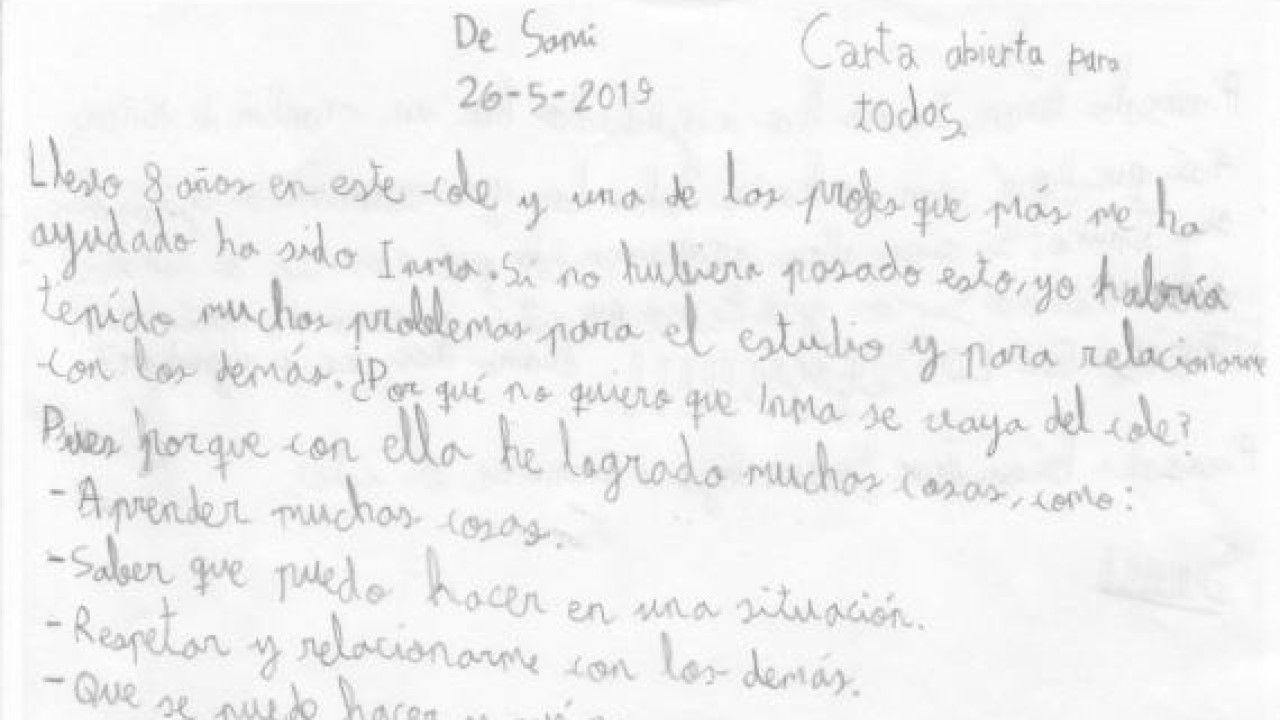 De Sami
26-5-2019
Carta abierta para
todos
Llevo 8 años en este cole y una de las profes que más me ha
ayudado ha sido Inma. Si no hubiera pasado esto, yo habría
tenido muchos problemas para el estudio y para relacionarme
con los demás. ¿Por qué no quiero que Inma se vaya del cole?
Pues porque con ella he logrado muchas cosas, como:
- Aprender muchas cosas.
- Saber que puedo hacer en una situación.
- Respetar y relacionarme con los demás.
- Que se puedo hacer y